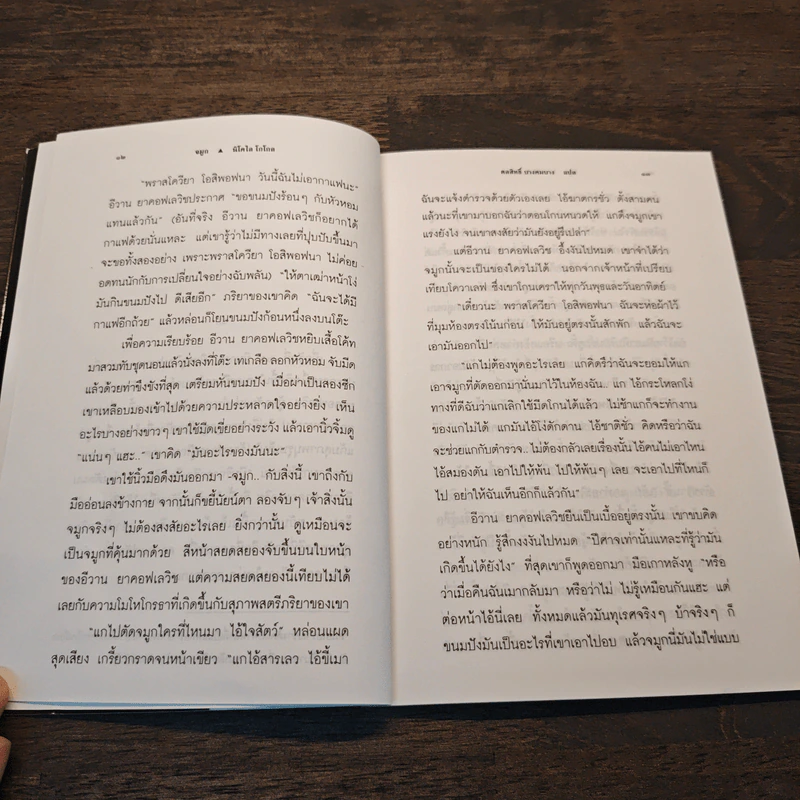 ๑๒ จมูก ▲ นิโคไล โกโกล
"พราสโควียา โอสิพอฟนา วันนี้ฉันไม่เอากาแฟนะ"
อีวาน ยาคอฟเลวิชประกาศ "ขอขนมปังร้อนๆ กับหัวหอม
แทนแล้วกัน" (อันที่จริง อีวาน ยาคอฟเลวิชก็อยากได้
กาแฟด้วยนั่นแหละ แต่เขารู้ว่าไม่มีทางเลยที่ปุบปับขึ้นมา
จะขอทั้งสองอย่าง เพราะพราสโควียา โอสิพอฟนา ไม่ค่อย
อดทนนักกับการเปลี่ยนใจอย่างฉับพลัน) "ให้ตาเฒ่าหน้าโง่
มันกินขนมปังไป ดีเสียอีก" ภริยาของเขาคิด "ฉันจะได้มี
กาแฟอีกถ้วย" แล้วหล่อนก็โยนขนมปังก้อนหนึ่งลงบนโต๊ะ
เพื่อความเรียบร้อย อีวาน ยาคอฟเลวิชหยิบเสื้อโค้ท
มาสวมทับชุดนอนแล้วนั่งลงที่โต๊ะ เทเกลือ ลอกหัวหอม จับมีด
แล้วด้วยท่าขึงขังที่สุด เตรียมหั่นขนมปัง เมื่อผ่าเป็นสองซีก
เขาเหลือบมองเข้าไปด้วยความประหลาดใจอย่างยิ่ง เห็น
อะไรบางอย่างขาวๆ เขาใช้มีดเขี่ยอย่างระวัง แล้วเอานิ้วจิ้มดู
"แน่นๆ แฮะ.." เขาคิด "มันอะไรของมันนะ"
เขาใช้นิ้วมือดึงมันออกมา -จมูก.. กับสิ่งนี้ เขาถึงกับ
มืออ่อนลงข้างกาย จากนั้นก็ขยี้นัยน์ตา ลองจับๆ เจ้าสิ่งนั้น
จมูกจริงๆ ไม่ต้องสงสัยอะไรเลย ยิ่งกว่านั้น ดูเหมือนจะ
เป็นจมูกที่คุ้นมากด้วย สีหน้าสยดสยองจับขึ้นบนใบหน้า
ของอีวาน ยาคอฟเลวิช แต่ความสยดสยองนี้เทียบไม่ได้
เลยกับความโมโหโกรธาที่เกิดขึ้นกับสุภาพสตรีภริยาของเขา
"แกไปตัดจมูกใครที่ไหนมา ไอ้ใจสัตว์" หล่อนแผด
สุดเสียง เกรี้ยวกราดจนหน้าเขียว "แกไอ้สารเลว ไอ้ขี้เมา
ดลสิทธิ์ บางคมบาง แปล ๑๓
ฉันจะแจ้งตำรวจด้วยตัวเองเลย ไอ้ฆาตกรชั่ว ตั้งสามคน
แล้วนะที่เขามาบอกฉันว่าตอนโกนหนวดให้ แกดึงจมูกเขา
แรงยังไง จนเขาสงสัยว่ามันยังอยู่รึเปล่า"
แต่อีวาน ยาคอฟเลวิช อึ้งงันไปหมด เขาจำได้ว่า
จมูกนั้นจะเป็นของใครไม่ได้ นอกจากเจ้าหน้าที่เปรียบ
เทียบโควาเลฟ ซึ่งเขาโกนเคราให้ทุกวันพุธและวันอาทิตย์
"เดี๋ยวนะ พราสโควียา โอสิพอฟนา ฉันจะห่อผ้าไว้
ที่มุมห้องตรงโน้นก่อน ให้มันอยู่ตรงนั้นสักพัก แล้วฉันจะ
เอามันออกไป"
"แกไม่ต้องพูดอะไรเลย แกคิดรึว่าฉันจะยอมให้แก
เอาจมูกที่ตัดออกมานั่นมาไว้ในห้องฉัน.. แก ไอ้กระโหลกโง่
ทางที่ดีฉันว่าแกเลิกใช้มีดโกนได้แล้ว ไม่ช้าแกก็จะทำงาน
ของแกไม่ได้ แกมันไอ้โง่ดักดาน ไอ้ชาติชั่ว คิดหรือว่าฉัน
จะช่วยแกกับตำรวจ.. ไม่ต้องกลัวเลยเรื่องนั้น ไอ้คนไม่เอาไหน
ไอ้สมองตัน เอาไปให้พ้น ไปให้พ้นๆ เลย จะเอาไปที่ไหนก็
ไป อย่าให้ฉันเห็นอีกก็แล้วกัน"
อีวาน ยาคอฟเลวิชยืนเป็นเบื้ออยู่ตรงนั้น เขาขบคิด
อย่างหนัก รู้สึกงงงันไปหมด "ปีศาจเท่านั้นแหละที่รู้ว่ามัน
เกิดขึ้นได้ยังไง" ที่สุดเขาก็พูดออกมา มือเกาหลังหู "หรือ
ว่าเมื่อคืนฉันเมากลับมา หรือว่าไม่ ไม่รู้เหมือนกันแฮะ แต่
ต่อหน้าไอ้นี่เลย ทั้งหมดแล้วมันทุเรศจริงๆ บ้าจริงๆ ก็
ขนมปังมันเป็นอะไรที่เขาเอาไปอบ แล้วจมูกนี่มันไม่ใช่แบบ